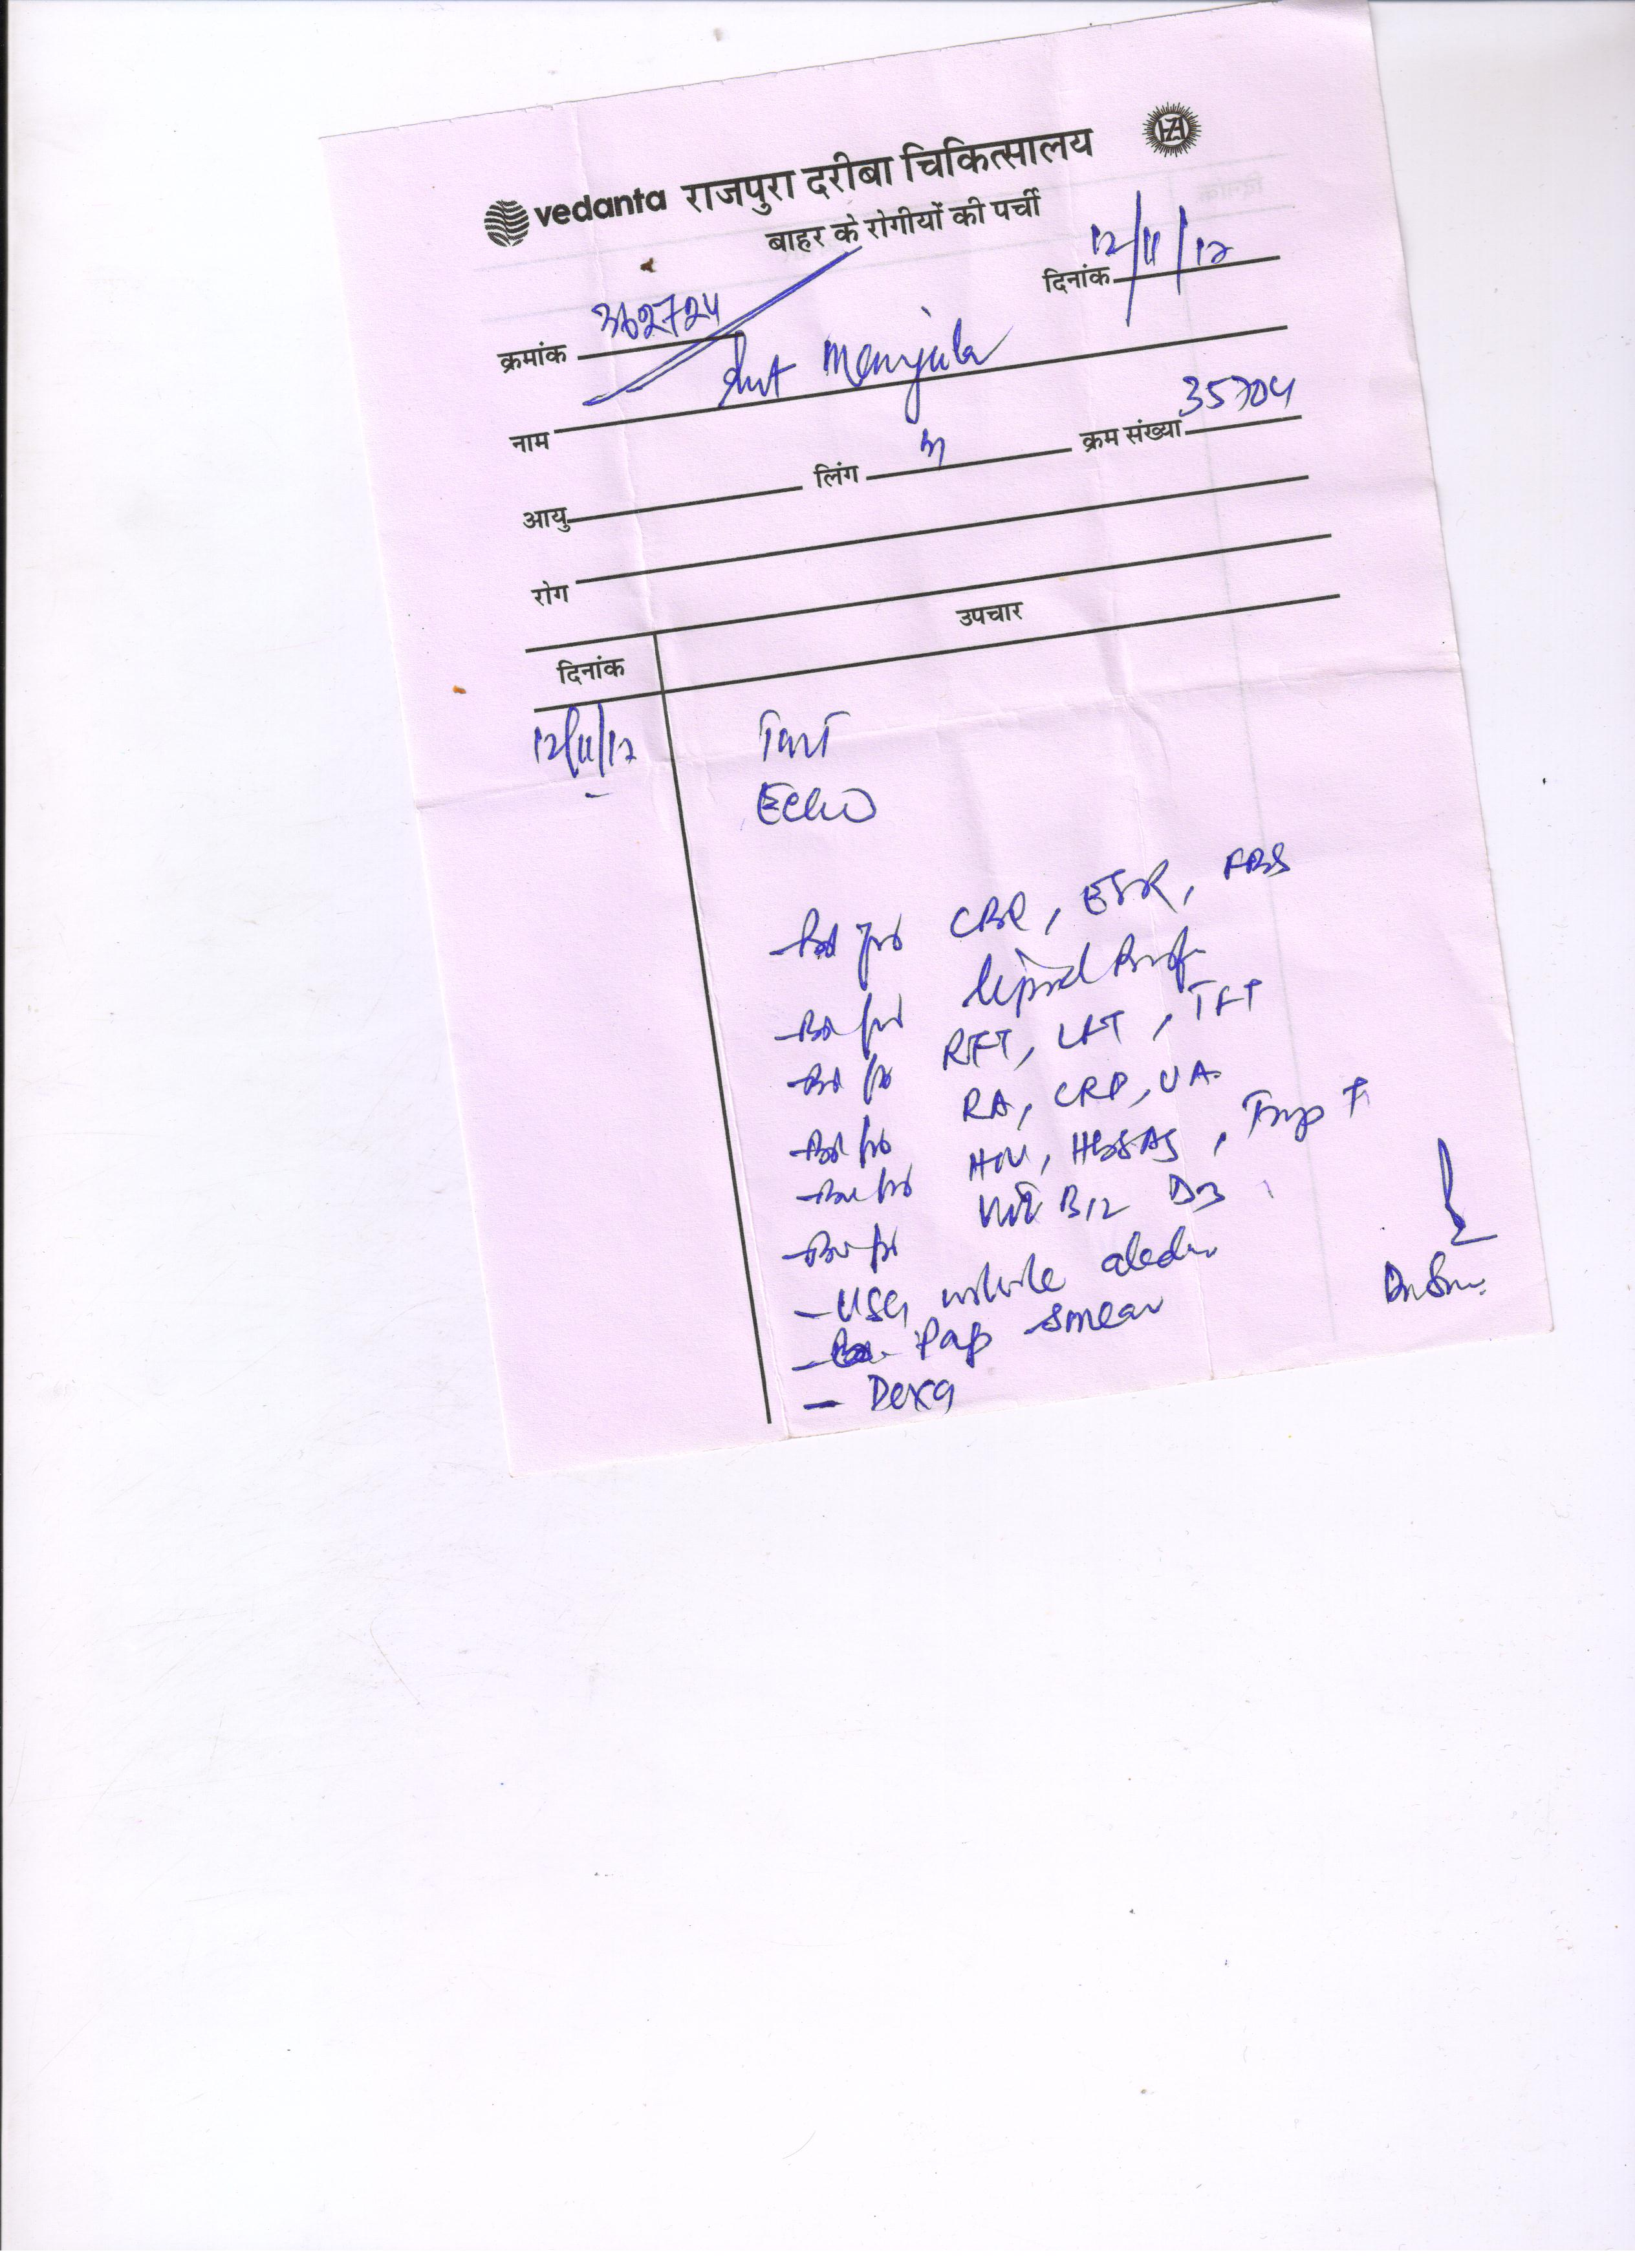 vedanta राजपुरा दरीबा चिकित्सालय
बाहर के रोगीयों की पर्ची
दिनांक 12/11/12
क्रमांक 362724
नाम Smt Manjula
आयु लिंग क्रम संख्या 35704
रोग
दिनांक उपचार
12/11/12
TMT
Echo
- Bld for CBC, ESR, FBS
- Bld for Lipid Prof
- Bld for RFT, LFT, TFT
- Bld for RA, CRP, UA
- Bld for HIV, HBSAg,
- Bld for Vit B12 D3
- USG whole abdm
- Pap smear
- Dexa